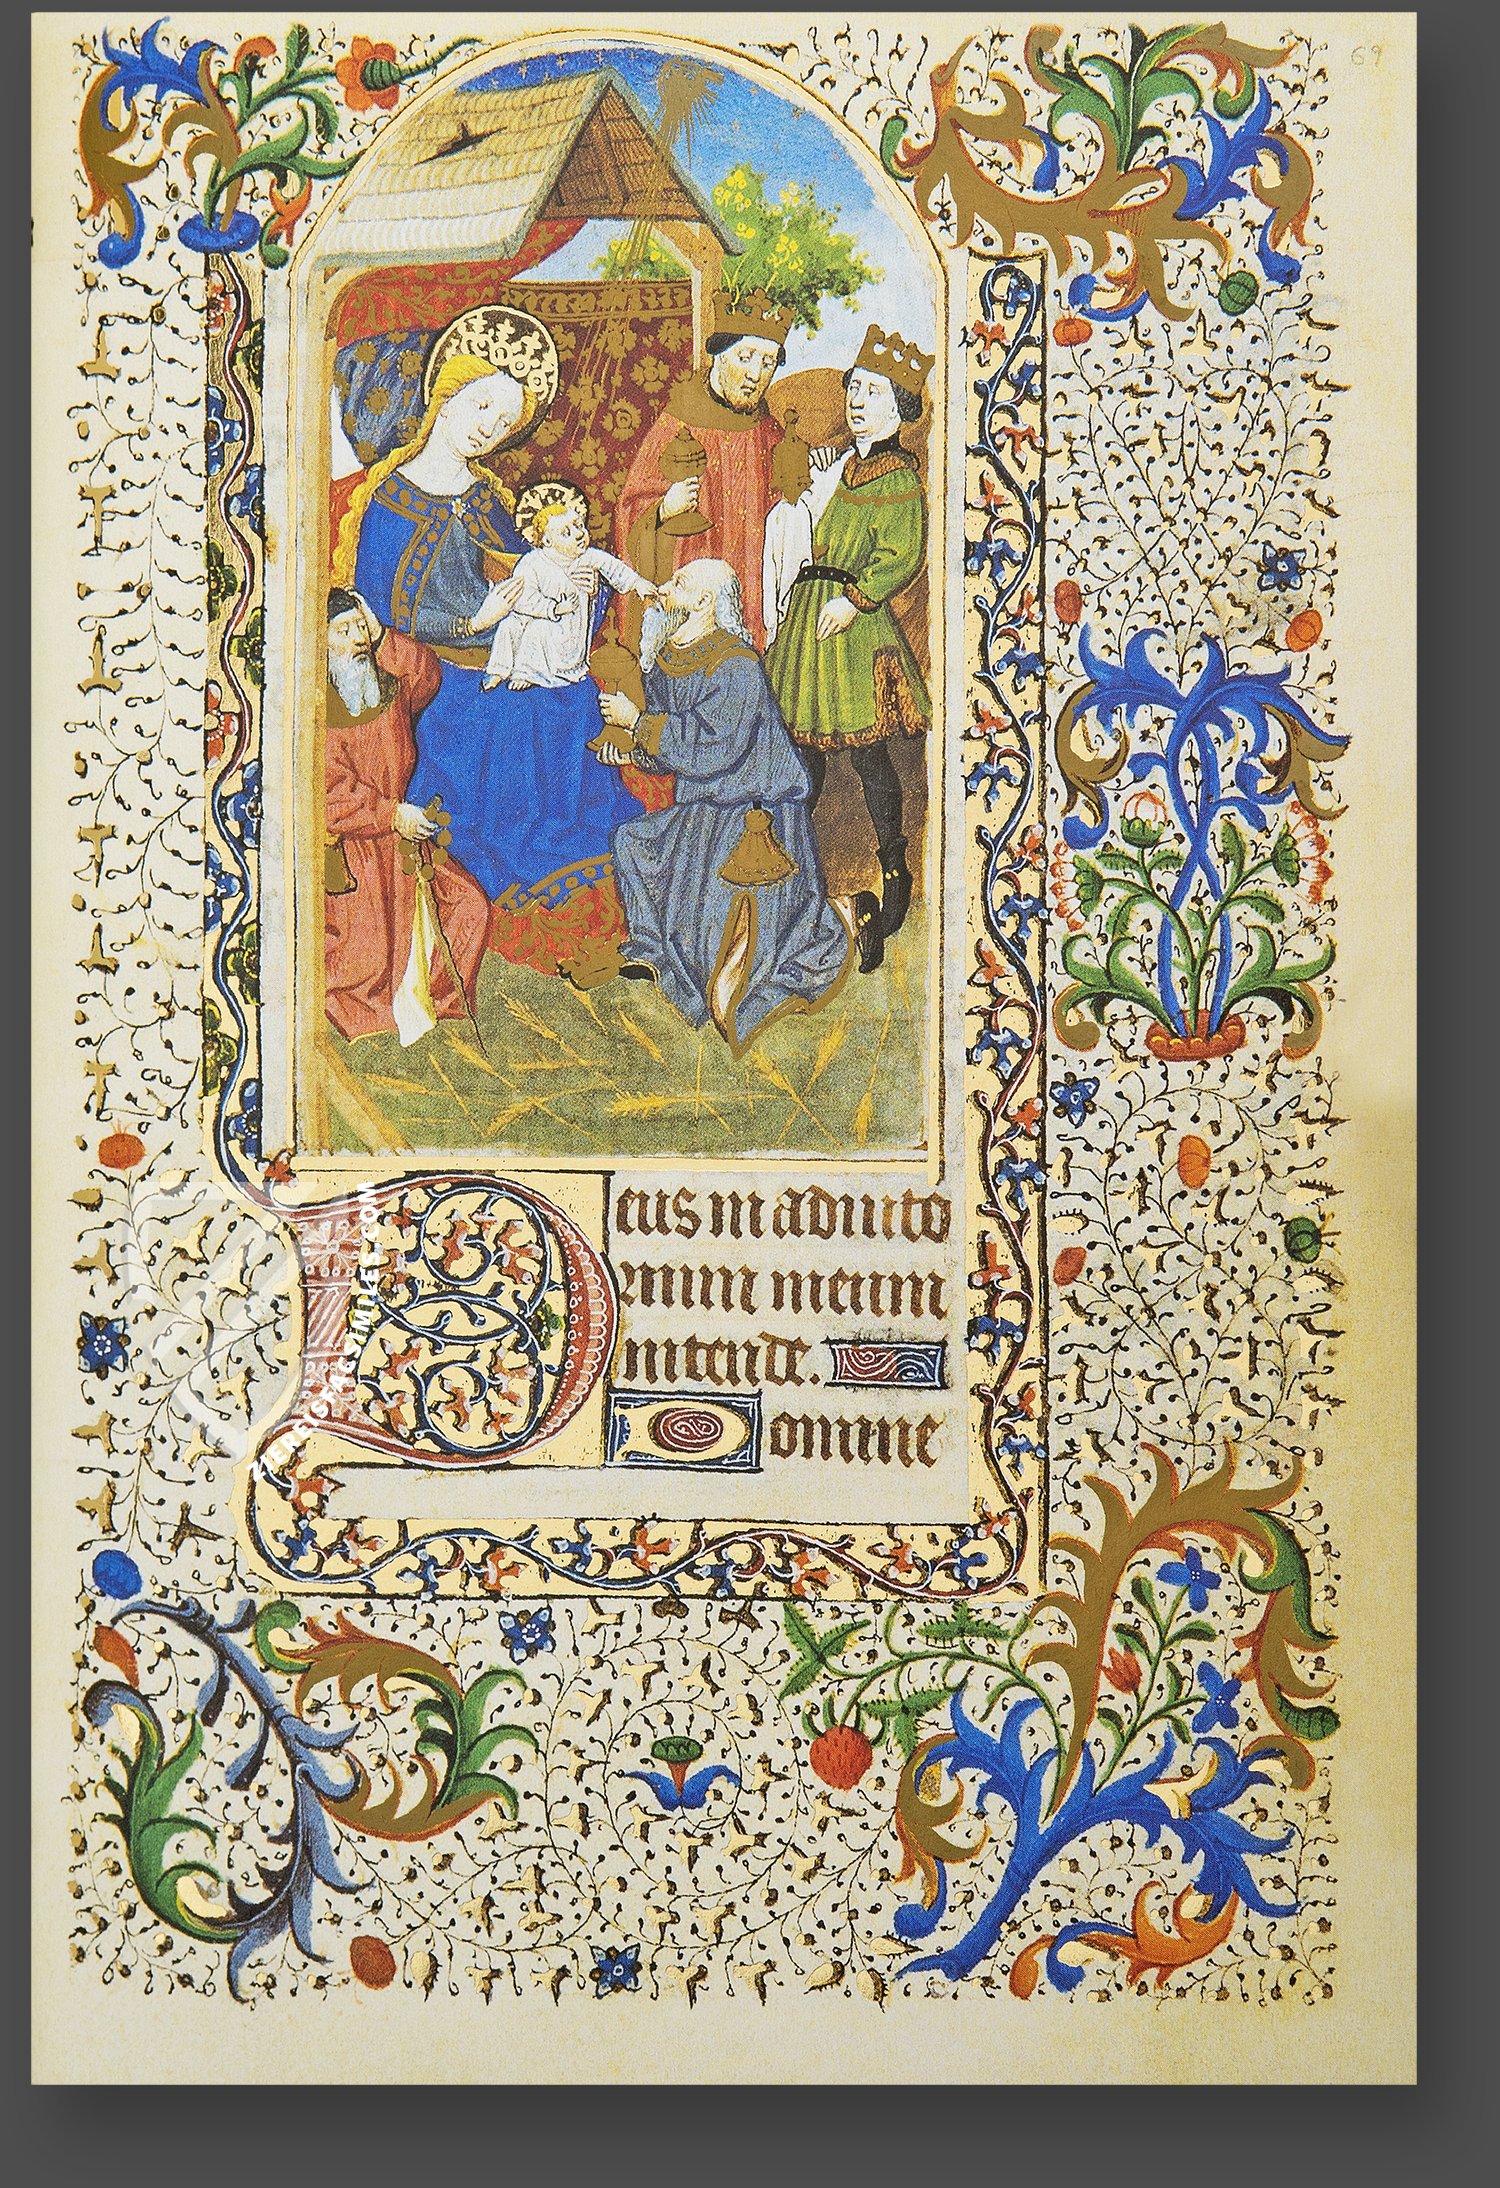 69
Deus in adiuto
rium meum
intende.
Domine
ZIEREIS FACSIMILES.COM